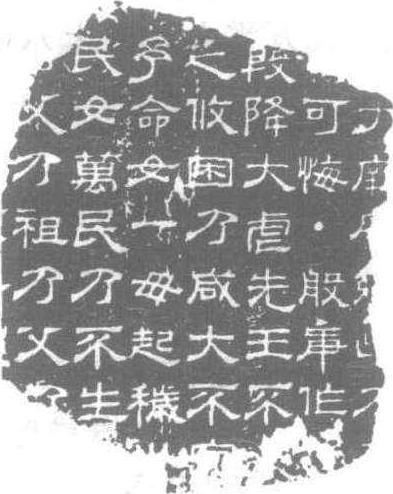 度
可悔·般庚作
殷降大虐先王不
之攸困乃咸大不
予命女一毋起穢
民女萬民乃不生
乃祖乃父